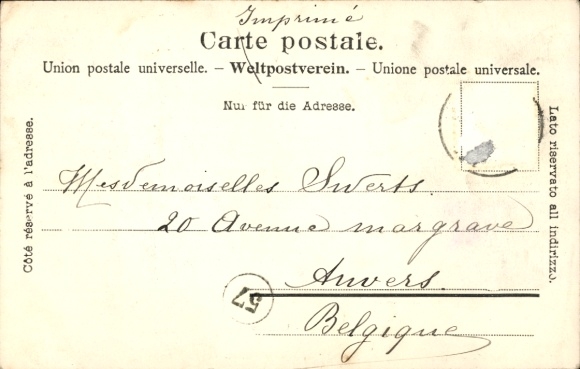 Imprimé
Carte postale.
Union postale universelle. – Weltpostverein. – Unione postale universale.
Nur für die Adresse.
Côté réservé à l'adresse.
Lato riservato all indirizzo.
Mesdemoiselles Swerts.
20 Avenue margrave
Anvers.
57
Belgique